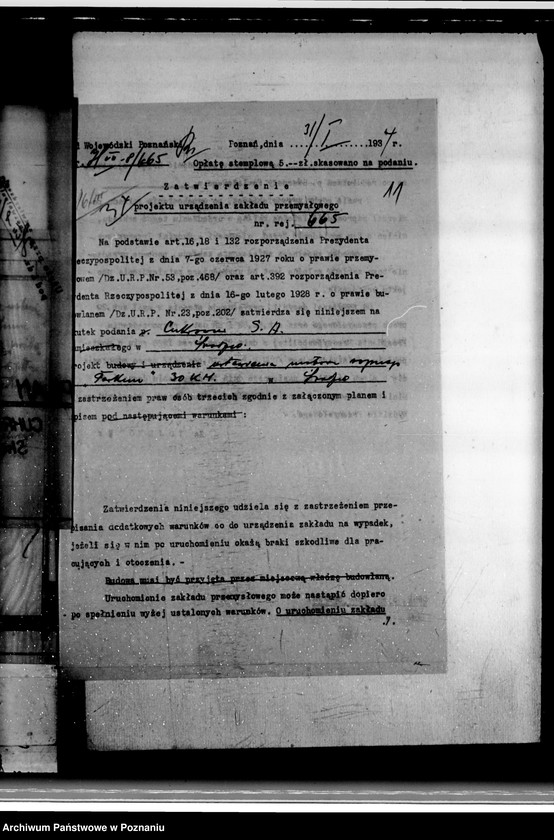 i Wojewódzki Poznański
Poznań,dnia 31/I 1934 r.
8/665 Opłatę stemplową 5.--zł.skasowano na podaniu.
11
Zatwierdzenie
projektu urządzenia zakładu przemysłowego
nr. rej. 665
Na podstawie art.16,18 i 132 rozporządzenia Prezydenta
eczypospolitej z dnia 7-go czerwca 1927 roku o prawie przemy-
owem /Dz.U.R.P.Nr.53,poz.468/ oraz art.392 rozporządzenia Pre-
denta Rzeczypospolitej z dnia 16-go lutego 1928 r. o prawie bu-
wlanem /Dz.U.R.P. Nr.23,poz.202/ zatwierdza się niniejszem na
utek podania p. Cukrowni S. A.
mieszkałego w
rojekt budowy i urządzenia ustawienia motoru
30 K.M. w
zastrzeżeniem praw osób trzecich zgodnie z załączonym planem i
pisem pod następującemi warunkami :
Zatwierdzenia niniejszego udziela się z zastrzeżeniem prze-
pisania dodatkowych warunków co do urządzenia zakładu na wypadek,
jeżeli się w nim po uruchomieniu okażą braki szkodliwe dla pra-
cujących i otoczenia. -
Budowa musi być przyjęta przez miejscową władzę budowlaną.
Uruchomienie zakładu przemysłowego może nastąpić dopiero
po spełnieniu wyżej ustalonych warunków. O uruchomieniu zakładu
Archiwum Państwowe w Poznaniu